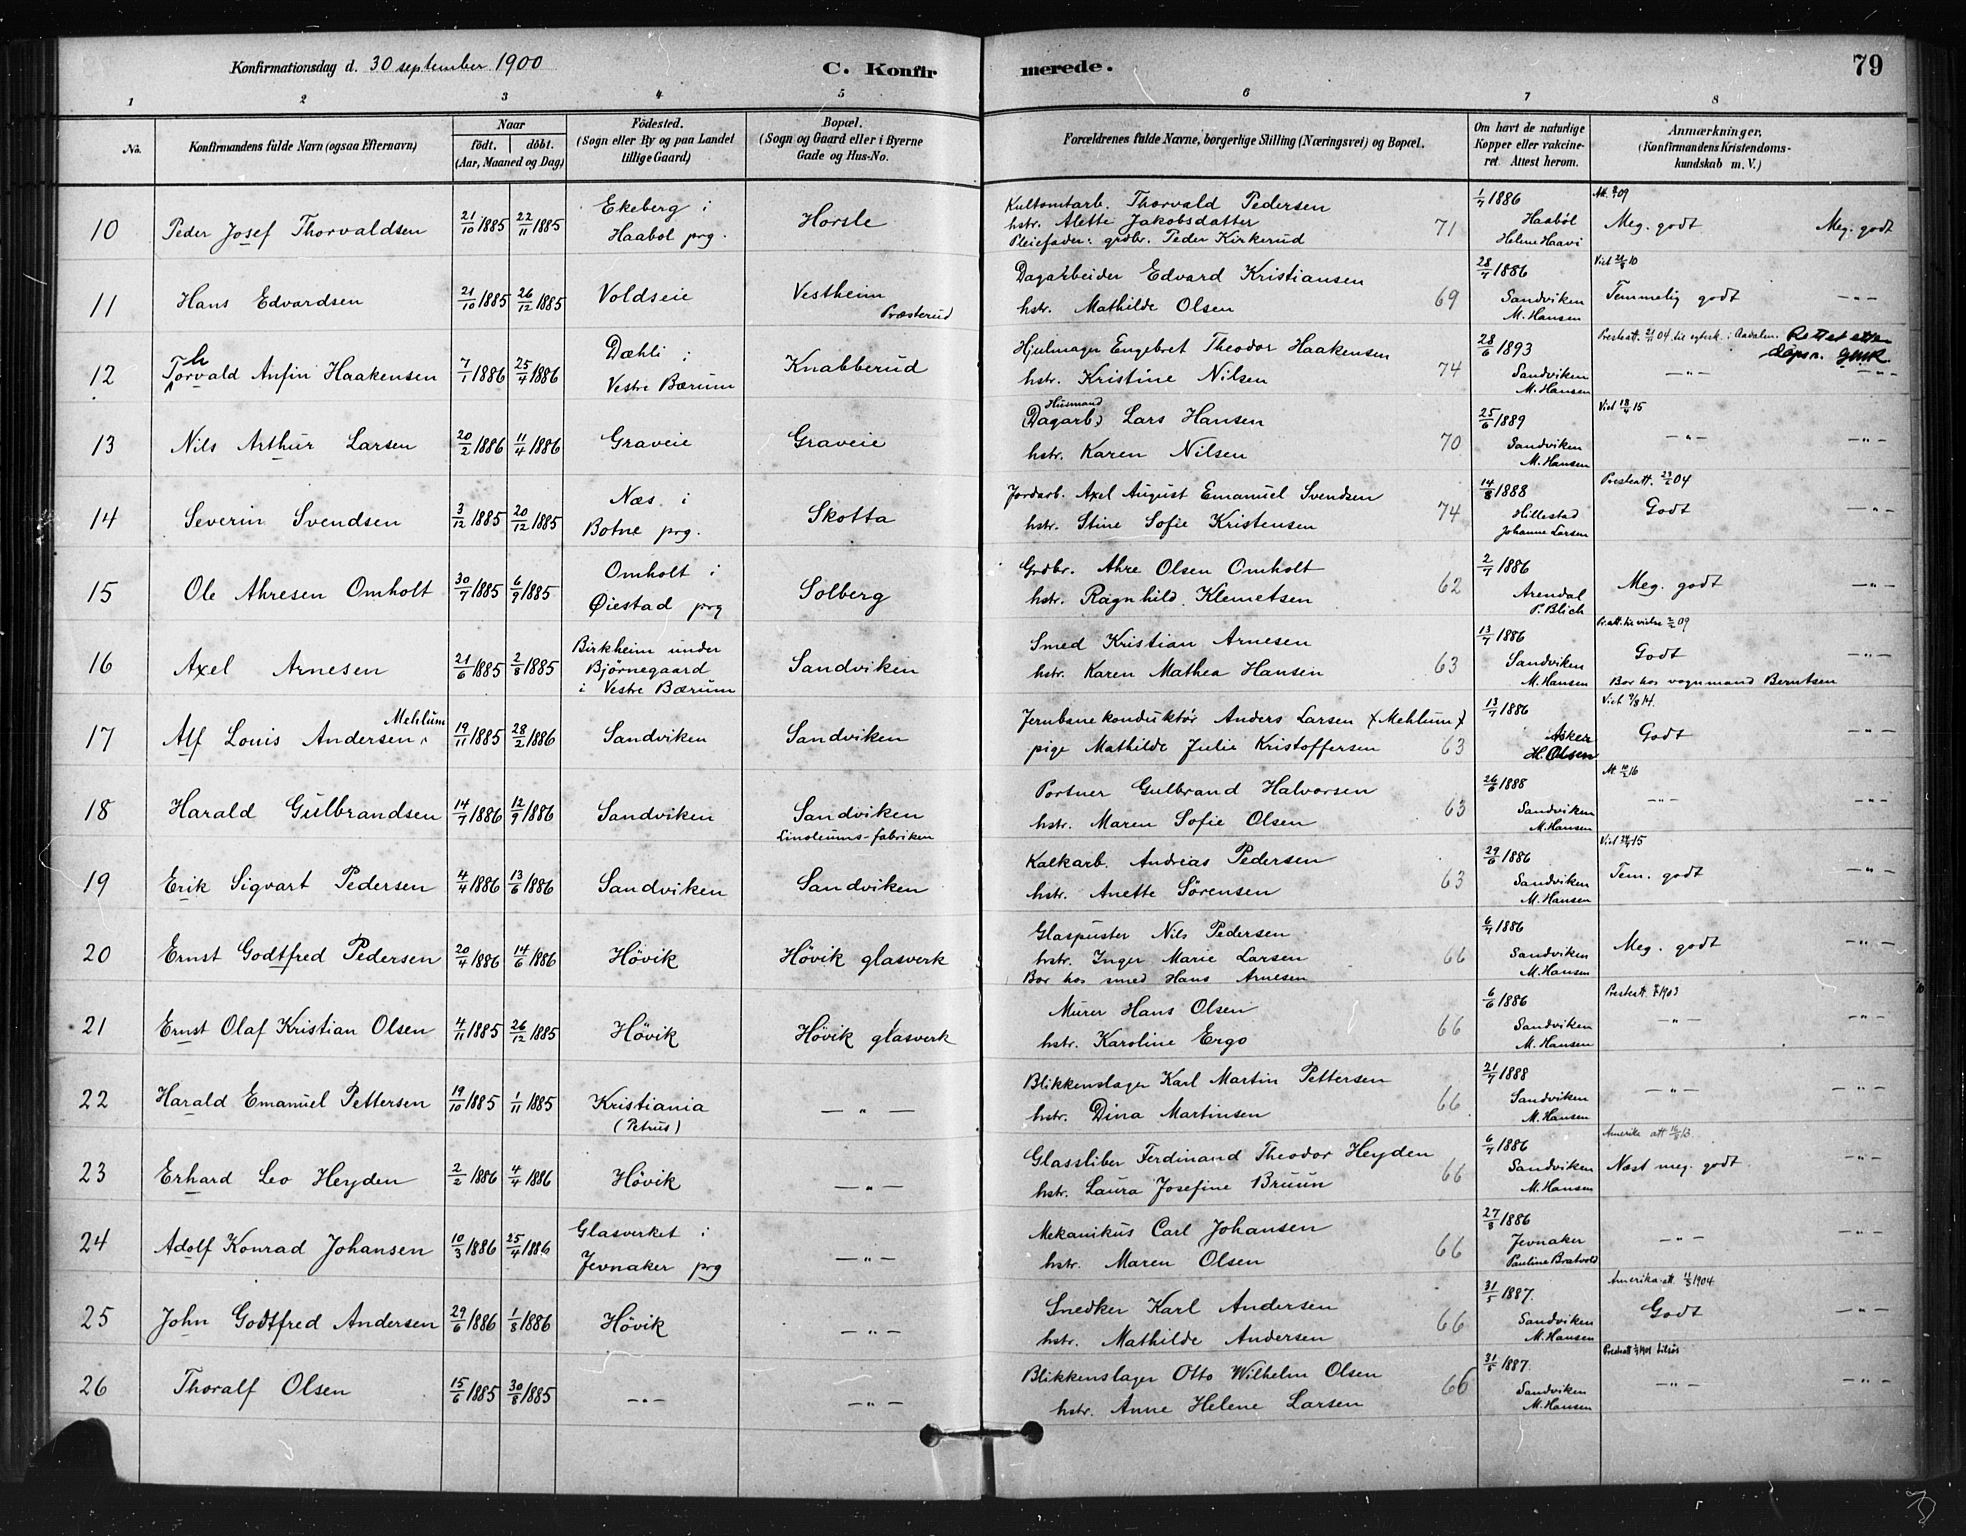 Konfirmationsdag d. 30 september 1900 C. Konfirmerede. 79
1 2 3 4 5 6 7 8
No. Konfirmandens fulde Navn (ogsaa Efternavn) Naar födt. döbt. (Aar, Maaned og Dag) Födested. (Sogn eller By og paa Landet tillige Gaard) Bopæl. (Sogn og Gaard eller i Byerne Gade og Hus-No. Forældrenes fulde Navne, borgerlige Stilling (Næringsvei) og Bopæl. Om havt de naturlige Kopper eller vakcineret. Attest herom. Anmærkninger, (Konfirmandens Kristendomskundskab m. V.)
10 Peder Josef Thorvaldsen 21/10 1885 22/11 1885 Ekeberg i Haabøl prg. Horsle
Thorvald Pedersen
hstr. Alette Jakobsdatter 71
Pleiefader: grdbr. Peder Kirkerud
1/7 1886 Haabøl Helene Haavi Meg. godt Meg. godt
11 Hans Edvardsen 21/10 1885 26/12 1885 Voldseie Vestheim Præsterud
Dagarbeider Edvard Kristiansen
hstr. Mathilde Olsen 69
28/7 1886 Sandviken M. Hansen Temmelig godt — „ —
12 Thorvald Anfin Haakensen 7/1 1886 25/4 1886 Dæhli i Vestre Bærum Knabberud
Hjulmager Engebret Theodor Haakensen
hstr. Kristine Nilsen 74
28/6 1893 Sandviken M. Hansen Rettet efter døpsr. — „ — — „ —
13 Nils Arthur Larsen 20/2 1886 11/4 1886 Graveie Graveie
Husmand
(Dagarb.) Lars Hansen
hstr. Karen Nilsen 70
25/6 1889 Sandviken M. Hansen Vict 18/4 15 — „ — — „ —
14 Severin Svendsen 3/12 1885 20/12 1885 Næs i Botne prg. Skotta
Jordarb. Axel August Emanuel Svendsen
hstr. Stine Sofie Kristensen 74
14/8 1888 Hillestad Johanne Larsen Godt — „ —
15 Ole Ahresen Omholt 30/7 1885 6/9 1885 Omholt i Øiestad prg Solberg
Grdbr. Ahre Olsen Omholt
hstr. Ragnhild Klemetsen 62
2/7 1886 Arendal P. Blich Meg. godt — „ —
16 Axel Arnesen 21/6 1885 2/8 1885 Birkheim under Bjørnegaard i Vestre Bærum Sandviken
Smed Kristian Arnesen
hstr. Karen Mathea Hansen 63
13/7 1886 Sandviken M. Hansen Godt — „ —
Bor hos vognmand Berntsen
17 Alf Louis Andersen, Mehlum 19/11 1885 28/2 1886 Sandviken Sandviken
Jernbanekonduktør Anders Larsen (Mehlum)
pige Mathilde Julie Kristoffersen 63
13/7 1886 Asker H. Olsen Godt — „ —
18 Harald Gulbrandsen 14/7 1886 12/9 1886 Sandviken Sandviken Linoleums-fabriken
Portner Gulbrand Halvorsen
hstr. Maren Sofie Olsen 63
26/6 1888 Sandviken M. Hansen — „ — — „ —
19 Erik Sigvart Pedersen 4/4 1886 13/6 1886 Sandviken Sandviken
Kalkarb. Andreas Pedersen
hstr. Anette Sörensen 63
29/6 1886 Sandviken M. Hansen Tem. godt — „ —
20 Ernst Godtfred Pedersen 20/4 1886 14/6 1886 Hövik Hövik glasverk
Glaspuster Nils Pedersen
hstr. Inger Marie Larsen 66
Bor hos smed Hans Arnesen
6/7 1886 Sandviken M. Hansen Meg. godt — „ —
21 Ernst Olaf Kristian Olsen 4/11 1885 26/12 1885 Hövik Hövik glasverk
Murer Hans Olsen
hstr. Karoline Ergo 66
6/6 1886 Sandviken M. Hansen — „ — — „ —
22 Harald Emanuel Pettersen 19/10 1885 1/11 1885 Kristiania (Petrus) — „ —
Blikkenslager Karl Martin Pettersen
hstr. Dina Martinsen 66
21/7 1888 Sandviken M. Hansen — „ — — „ —
23 Erhard Leo Heyden 2/2 1886 4/4 1886 Hövik — „ —
Glassliber Ferdinand Theodor Heyden
hstr. Laura Josefine Bruun 66
6/7 1886 Sandviken M. Hansen Næst meg. godt — „ —
24 Adolf Konrad Johansen 10/3 1886 25/4 1886 Glasverket i Jevnaker prg — „ —
Mekanikus Carl Johansen
hstr. Maren Olsen 66
27/8 1886 Jevnaker Pauline Bratvold — „ — — „ —
25 John Godtfred Andersen 29/6 1886 1/8 1886 Hövik — „ —
Snedker Karl Andersen
hstr. Mathilde Andersen 66
31/5 1887. Sandviken M. Hansen Godt — „ —
26 Thoralf Olsen 15/6 1885 30/8 1885 — „ — — „ —
Blikkenslager Otto Wilhelm Olsen
hstr. Anne Helene Larsen 66
31/5 1887. Sandviken M. Hansen — „ — — „ —